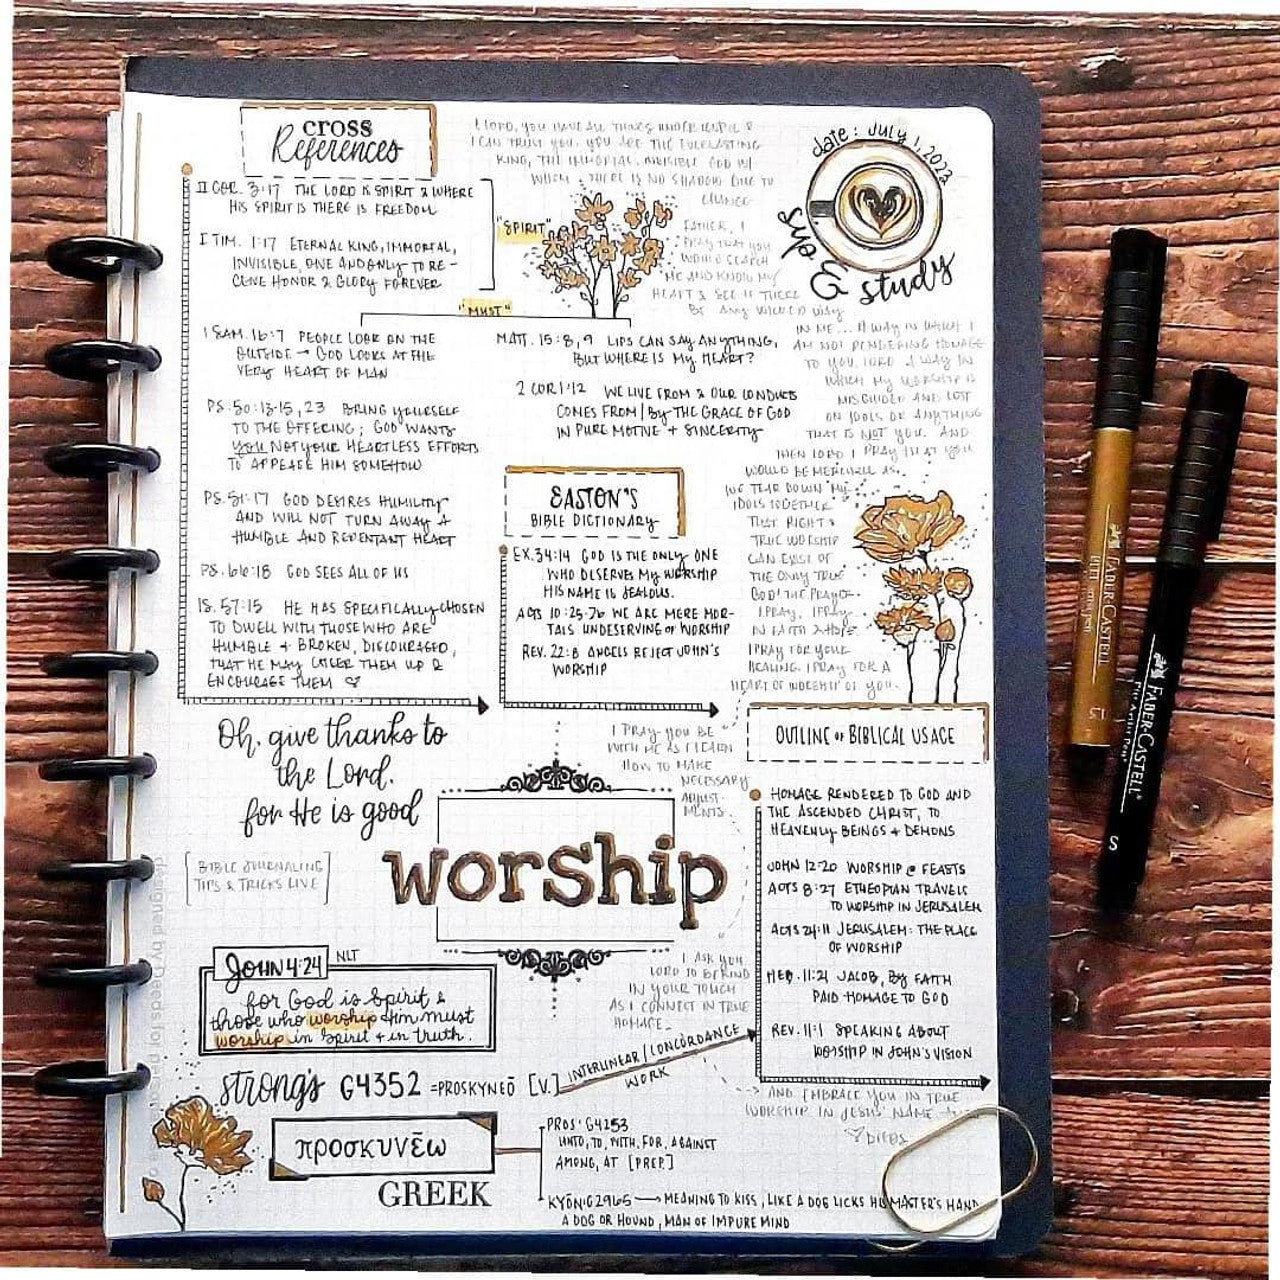 cross
References
II COR. 3:17 THE LORD IS SPIRIT & WHERE
HIS SPIRIT IS THERE IS FREEDOM
I TIM. 1:17 ETERNAL KING, IMMORTAL,
INVISIBLE, ONE AND ONLY TO RE-
CEIVE HONOR & GLORY FOREVER
"SPIRIT"
"MUST"
1 SAM. 16:7 PEOPLE LOOK ON THE
OUTSIDE → GOD LOOKS AT THE
VERY HEART OF MAN
PS. 50:13-15, 23 BRING YOURSELF
TO THE OFFERING; GOD WANTS
YOU NOT YOUR HEARTLESS EFFORTS
TO APPEASE HIM SOMEHOW
PS. 51:17 GOD DESIRES HUMILITY
AND WILL NOT TURN AWAY A
HUMBLE AND REPENTANT HEART
PS. 66:18 GOD SEES ALL OF US
IS. 57:15 HE HAS SPECIFICALLY CHOSEN
TO DWELL WITH THOSE WHO ARE
HUMBLE + BROKEN, DISCOURAGED,
THAT HE MAY CHEER THEM UP &
ENCOURAGE THEM ♡
MATT. 15:8,9 LIPS CAN SAY ANYTHING,
BUT WHERE IS MY HEART?
2 COR 1:12 WE LIVE FROM & OUR CONDUCT
COMES FROM / BY THE GRACE OF GOD
IN PURE MOTIVE + SINCERITY
EASTON'S
BIBLE DICTIONARY
EX. 34:14 GOD IS THE ONLY ONE
WHO DESERVES MY WORSHIP
HIS NAME IS JEALOUS.
ACTS 10:25-26 WE ARE MERE MOR-
TALS UNDESERVING OF WORSHIP
REV. 22:8 ANGELS REJECT JOHN'S
WORSHIP
LORD, YOU HAVE ALL THINGS UNDER CONTROL &
I CAN TRUST YOU. YOU ARE THE EVERLASTING
KING, THE IMMORTAL, INVISIBLE GOD W/
WHOM THERE IS NO SHADOW DUE TO
CHANGE
FATHER, I
PRAY THAT YOU
WOULD SEARCH
ME AND KNOW MY
HEART & SEE IF THERE
BE ANY WICKED WAY
IN ME... A WAY IN WHICH I
AM NOT RENDERING HOMAGE
TO YOU, LORD. A WAY IN
WHICH MY WORSHIP IS
MISGUIDED AND LOST
ON IDOLS OR ANYTHING
THAT IS NOT YOU. AND
THEN LORD I PRAY THAT YOU
WOULD BE MERCIFUL AS
WE TEAR DOWN MY
IDOLS TOGETHER
THAT RIGHT &
TRUE WORSHIP
CAN EXIST OF
THE ONLY TRUE
GOD!
I PRAY, I PRAY
IN FAITH & HOPE
I PRAY FOR YOUR
HEALING. I PRAY FOR A
HEART OF WORSHIP OF YOU.
date: July 1, 2022
sip & study
Oh, give thanks to
the Lord,
for He is good
[BIBLE JOURNALING
TIPS & TRICKS LIVE]
I PRAY YOU BE
WITH ME AS I LEARN
HOW TO MAKE
NECESSARY
ADJUST-
MENTS.
worship
OUTLINE OF BIBLICAL USAGE
HOMAGE RENDERED TO GOD AND
THE ASCENDED CHRIST, TO
HEAVENLY BEINGS + DEMONS
JOHN 12:20 WORSHIP @ FEASTS
ACTS 8:27 ETHEOPIAN TRAVELS
TO WORSHIP IN JERUSALEM
ACTS 24:11 JERUSALEM: THE PLACE
OF WORSHIP
HEB. 11:21 JACOB, BY FAITH
PAID HOMAGE TO GOD
REV. 11:1 SPEAKING ABOUT
WORSHIP IN JOHN'S VISION
JOHN 4:24 NLT
for God is Spirit &
those who worship Him must
worship in Spirit + in truth.
I ASK YOU
LORD TO
IN YOUR TOUCH
AS I CONNECT IN TRUE
HOMAGE
strong's G4352 =PROSKYNEŌ [V.]
INTERLINEAR / CONCORDANCE
WORK
AND EMBRACE YOU IN TRUE
WORSHIP IN JESUS' NAME
προσκυνέω
GREEK
PROS' G4253
UNTO, TO, WITH, FOR, AGAINST
AMONG, AT [PREP.]
KYŌN G2965 → MEANING TO KISS, LIKE A DOG LICKS HIS MASTER'S HAND
A DOG OR HOUND, MAN OF IMPURE MIND
FABER-CASTELL
PITT artist pen
1.5
FABER-CASTELL
S